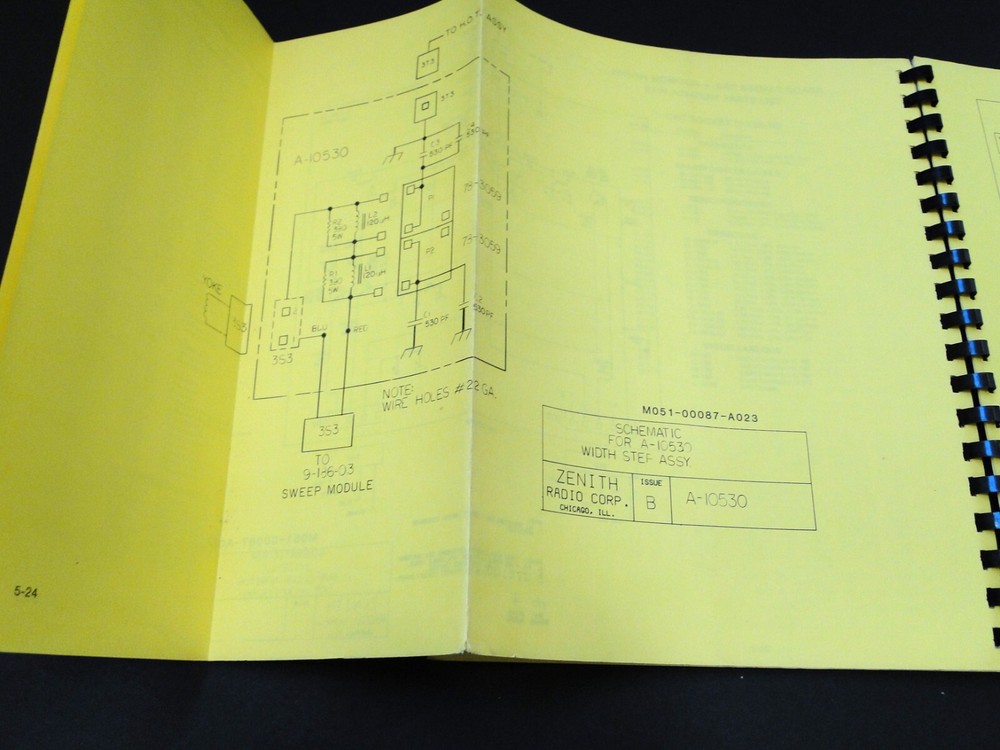 TO H.O.T. ASSY
3T3
3T3
A-10530
C3
530 PF
C4
530 PF
P1
79-3059
R2
330
5W
L2
120uH
P2
79-3059
R1
330
5W
L1
120uH
YOKE
3S3
2
1
3S3
BLU
RED
C1
530 PF
C2
530 PF
NOTE:
WIRE HOLES #22 GA.
3S3
TO
9-186-03
SWEEP MODULE
M051-00087-A023
SCHEMATIC
FOR A-10530
WIDTH STEP ASSY.
ZENITH
RADIO CORP.
CHICAGO, ILL.
ISSUE
B
A-10530
5-24